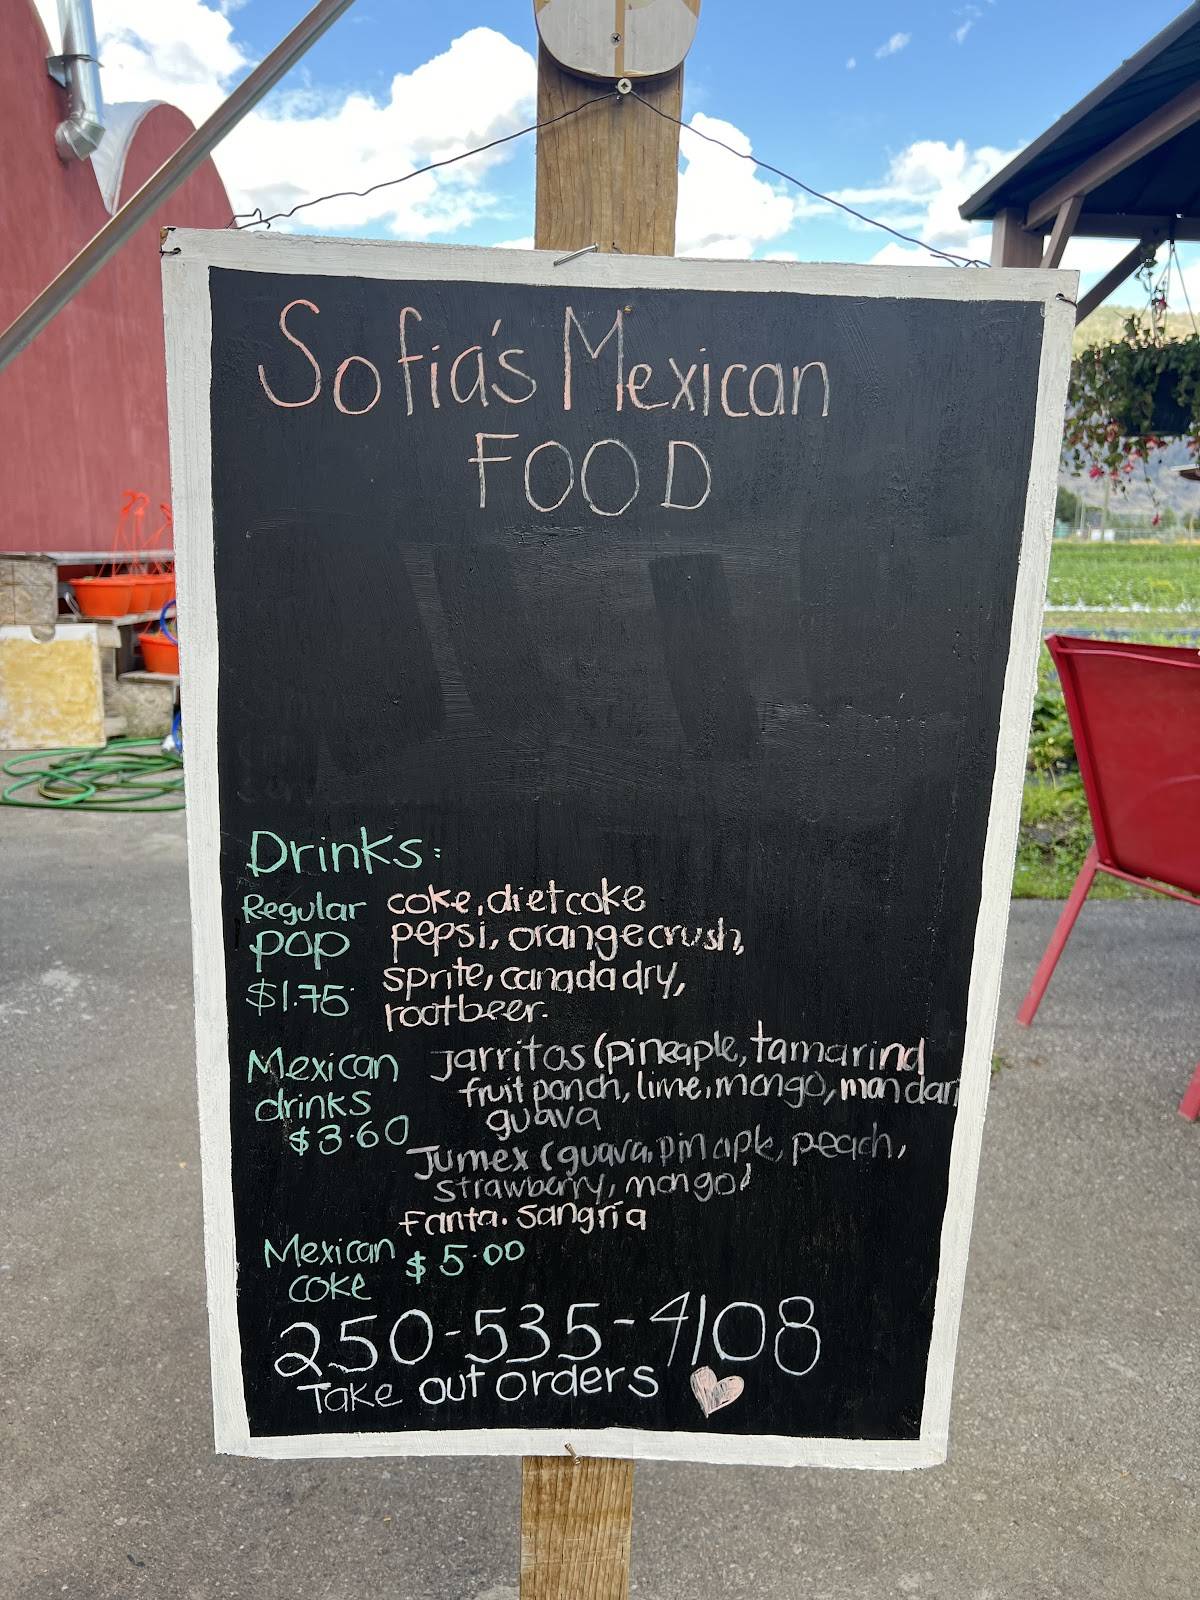 Sofia's Mexican
FOOD
Drinks:
Regular coke, diet coke
pop pepsi, orange crush,
$1.75 sprite, canada dry,
rootbeer.
Mexican Jarritos (pineaple, tamarind
drinks fruit ponch, lime, mango), mandari
$3.60 guava
Jumex (guava, pinaple, peach,
strawberry, mango)
Fanta. Sangría
Mexican $5.00
coke
250-535-4108
Take out orders